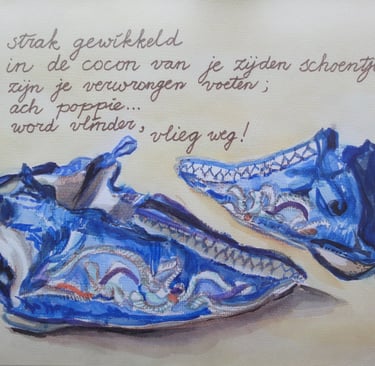 strak gewikkeld
in de cocon van je zijden schoentje
zijn je verwrongen voeten;
ach poppie...
word vlinder, vlieg weg!